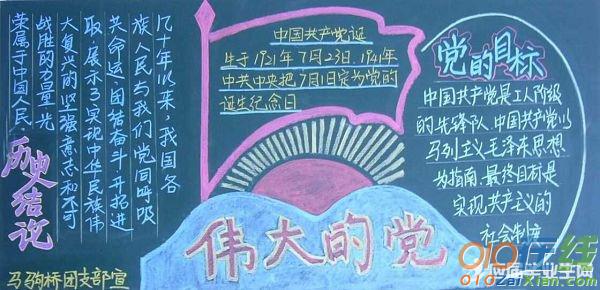 历史结论
几十年以来,我国各
族人民与我们党同呼吸
共命运,团结奋斗,开拓进
取,展示了实现中华民族伟
大复兴的坚强意志和不可
战胜的力量。光
荣属于中国人民。
中国共产党诞
生于1921年7月23日.1941年
中共中央把7月1日定为党的
诞生纪念日
党的目标
中国共产党是工人阶级
的先锋队.中国共产党以
马列主义毛泽东思想
为指南.最终目标是
实现共产主义的
社会制度
伟大的党
马驹桥团支部宣
010在线
010zaixian.com